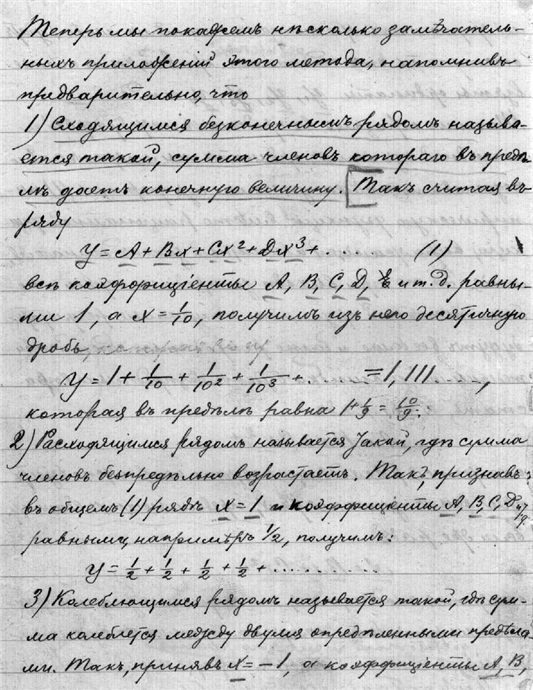 Теперь мы покажемъ нѣсколько замѣчатель-
ныхъ приложеній этого метода, напомнивъ
предварительно, что
1) Сходящимся безконечнымъ рядомъ называ-
ется такой, сумма членовъ котораго въ предѣ-
лѣ даетъ конечную величину. [Такъ считая въ
ряду
y = A + Bx + Cx² + Dx³ + . . . (1)
всѣ коэффиціенты A, B, C, D, и т. д. равны-
ми 1, а x = 1/10, получимъ изъ него десятичную
дробь,
y = 1 + 1/10 + 1/10² + 1/10³ + . . . = 1,111 . . . ,
которая въ предѣлѣ равна 1 + 1/9 = 10/9.
2) Расходящимся рядомъ называется такой, гдѣ сумма
членовъ безпредѣльно возрастаетъ. Такъ, признавъ
въ общемъ (1) рядѣ x = 1 и коэффиціенты A, B, C, D
равными, напримѣръ 1/2, получимъ:
y = 1/2 + 1/2 + 1/2 + 1/2 + . . . . . . . .
3) Колеблющимся рядомъ называется такой, гдѣ сум-
ма колеблется между двумя опредѣленными предѣла-
ми. Такъ, принявъ x = − 1, а коэффиціенты A, B,